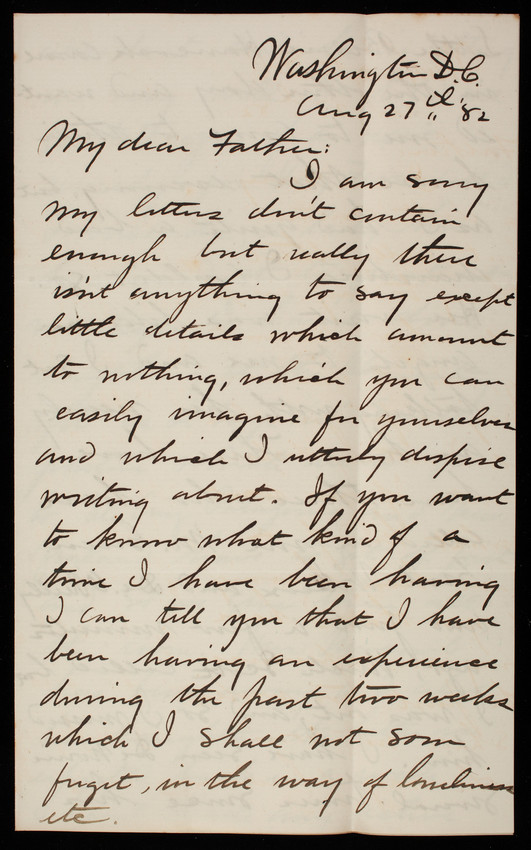 Washington D.C.
Aug 27th '82
My dear Father:
I am sorry
my letters don't contain
enough but really there
isn't anything to say except
little details which amount
to nothing, which you can
easily imagine for yourselves
and which I utterly dispise
writing about. If you want
to know what kind of a
time I have been having
I can tell you that I have
been having an experience
during the past two weeks
which I shall not soon
forget, in the way of loneliness
etc.